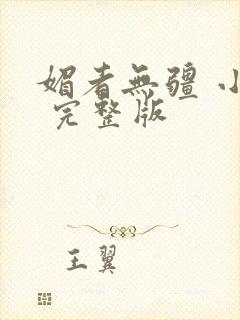 媚者無疆 小
完整版
王翼